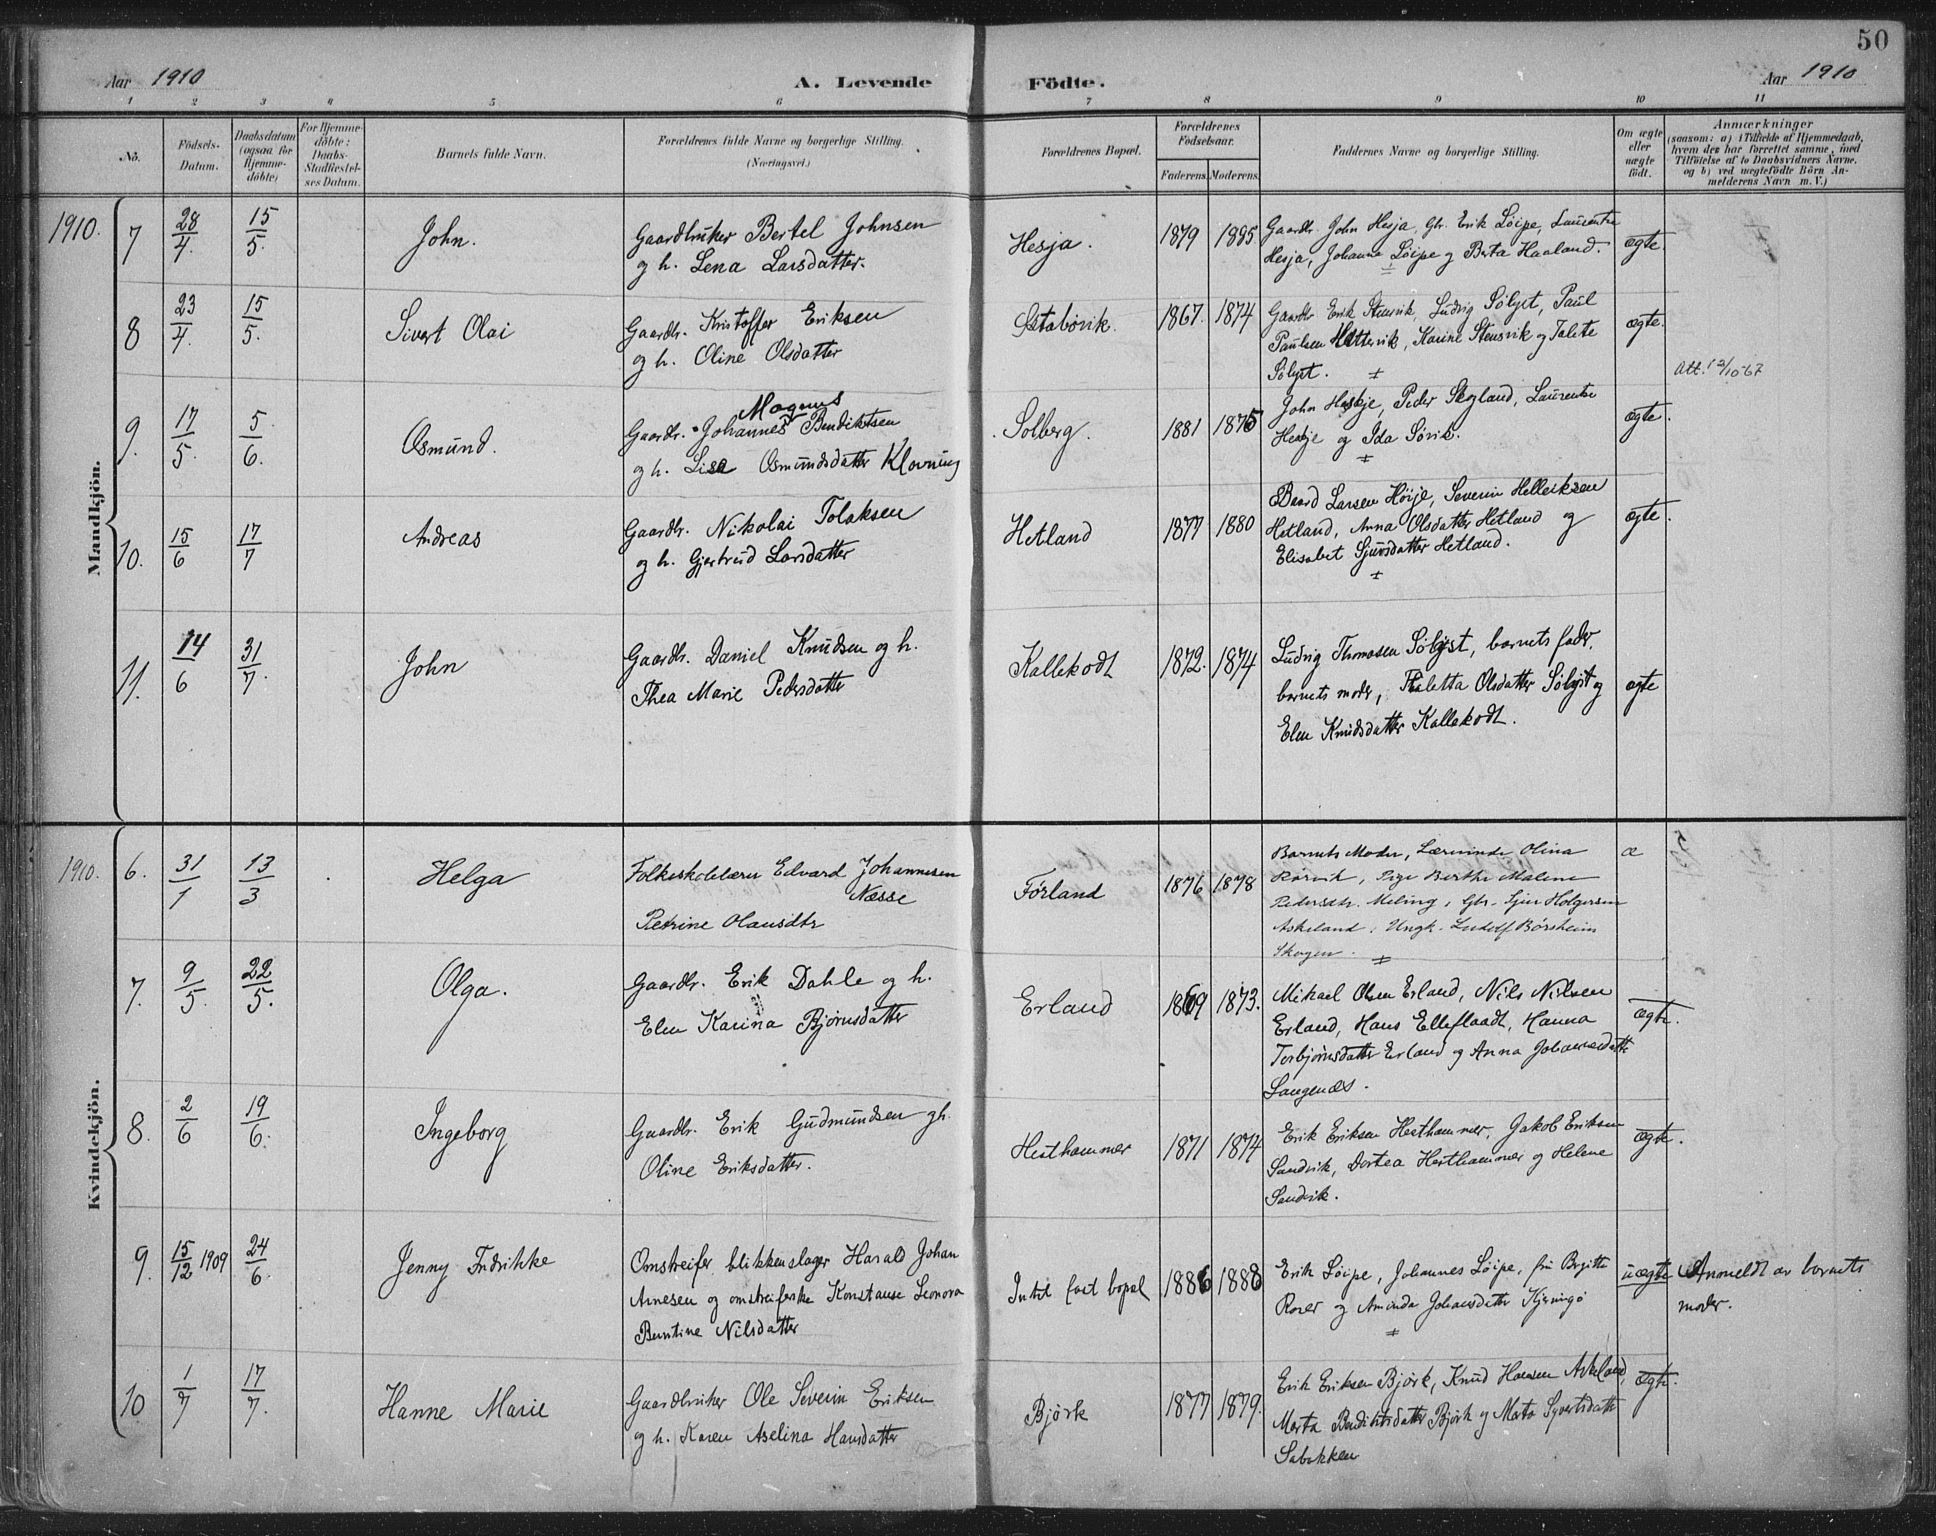 50
Aar 1910 A. Levende Födte. Aar 1910
1 2 3 4 5 6 7 8 9 10 11
No.
Födsels-
Datum.
Daabsdatum
(ogsaa for
Hjemme-
döbte)
For Hjemme-
döbte:
Daabs-
Stadfæstel-
ses Datum.
Barnets fulde Navn.
Forældrenes fulde Navne og borgerlige Stilling.
(Næringsvei.)
Forældrenes Bopæl.
Forældrenes
Födselsaar.
Faderens. Moderens.
Faddernes Navne og borgerlige Stilling.
Om ægte
eller
uægte
födt.
Anmærkninger
(saasom: a) i Tilfælde af Hjemmedaab,
hvem der har forrettet samme, med
Tilföielse af to Daabsvidners Navne.
og b) ved uægtefödte Börn An-
melderens Navn m. V.)
Mandkjön.
1910. 7 28/4. 15/5. John.
Gaardbruker Bertel Johnsen
og h. Lena Larsdatter.
Hesja. 1879 1885
Gaardbr. John Hesja, Gbr. Erik Løipe, Laurentse
Hesja, Johanna Løipe og Berta Haaland.
ægte.
8 23/4. 15/5. Sivert Olai
Gaardbr. Kristoffer Eriksen
og h. Oline Olsdatter
Østabøvik. 1867. 1874
Gaardbr Erik Stensvik, Ludvig Sølyst, Paul
Paulsen Hettervik, Karine Stensvik og Talete
Sølyst.
ægte.
Att. 12/10-67
9. 17/5. 5/6. Osmund.
Mogens
Gaardbr. Johannes Bendiktsen
og h. Lisa Osmundsdatter Klovning
Solberg. 1881 1875
John Heskje, Peder Skogland, Laurentse
Heskje og Ida Sørvik.
ægte.
10. 15/6 17/7 Andreas
Gaardbr. Nikolai Tolaksen
og h. Gjertrud Larsdatter
Hetland 1877 1880
Baard Larsen Høije, Severin Helleiksen
Hetland, Anna Olsdatter Hetland og
Elisabet Sjursdatter Hetland.
ægte.
11. 14/6 31/7. John
Gaardbr. Daniel Knudsen og h.
Thea Marie Pedersdatter
Kallekodt 1872. 1874
Ludvig Thomasen Sølyst, barnets fader,
barnets moder, Thaletta Olsdatter Sølyst og
Elen Knudsdatter Kallekodt.
ægte
Kvindekjön.
1910. 6. 31/1 13/3 Helga
Folkeskolelærer Edvard Johannesen
Næsse
Petrine Olausdtr
Førland 1876 1878
Barnets Moder, Lærerinde Olina
Rørvik, Pige Berthe Malene
Pedersdtr. Meling, Gbr. Sjur Holgersen
Askeland, Ungk. Ludolf Børsheim
Skogen.
æ
7. 9/5. 22/5. Olga.
Gaardbr. Erik Dahle og h.
Elen Karina Bjørnsdatter
Erland 1869 1873.
Mikael Olsen Erland, Nils Nilsen
Erland, Hans Elleflaadt, Hanna
Torbjørnsdatter Erland og Anna Johannesdatter
Langenæs.
ægte.
8. 2/6 19/6. Ingeborg
Gaardbr. Erik Gudmundsen og h.
Oline Eriksdatter.
Hesthammer 1871 1874
Erik Eriksen Hesthammer, Jakob Eriksen
Sandvik, Dortea Hesthammer og Helene
Sandvik.
ægte.
9. 15/12 1909 24/6. Jenny Fredrikke
Omstreifer blikkenslager Harald Johan
Arnesen og omstreiferske Konstanse Leonora
Berntine Nilsdatter
Intet fast bopæl 1886 1888
Erik Løipe, Johannes Løipe, fru Birgitte
Roser og Amanda Johansdatter Kjerringø
uægte
Anmeldt av barnets
moder.
10 1/7 17/7. Hanne Marie
Gaardbruker Ole Severin Eriksen
og h. Karen Aselina Hansdatter
Bjørk 1877 1879.
Erik Eriksen Bjørk, Knud Hansen Askeland,
Marta Bendiktsdatter Bjørk og Marta Syvertsdatter
Sabokken
ægte.